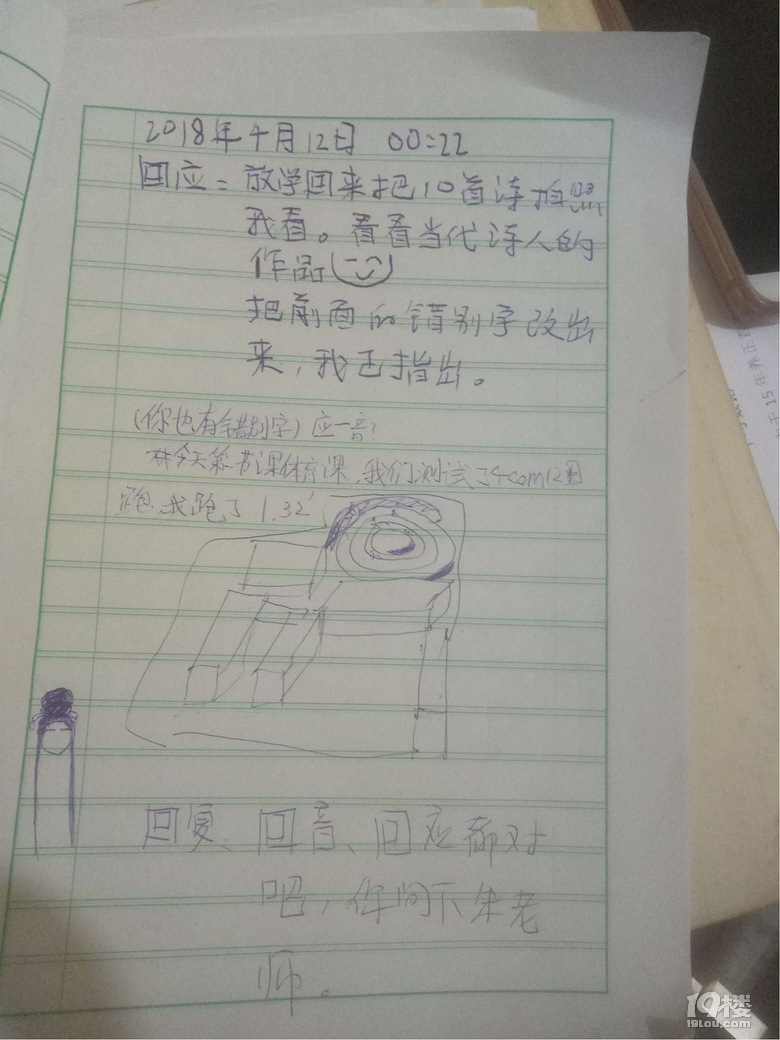 2018年4月12日 00:22
回应：放学回来把10首诗拍照
我看。看看当代诗人的
作品
把前面的错别字改出
来，我已指出。
(你也有错别字) 应→音！
今天第一节课体育课,我们测试了400m12圈
跑,我跑了 1.32'
回复、回音、回应都对
吧，你问下朱老
师。
19楼
19lou.com
年终正